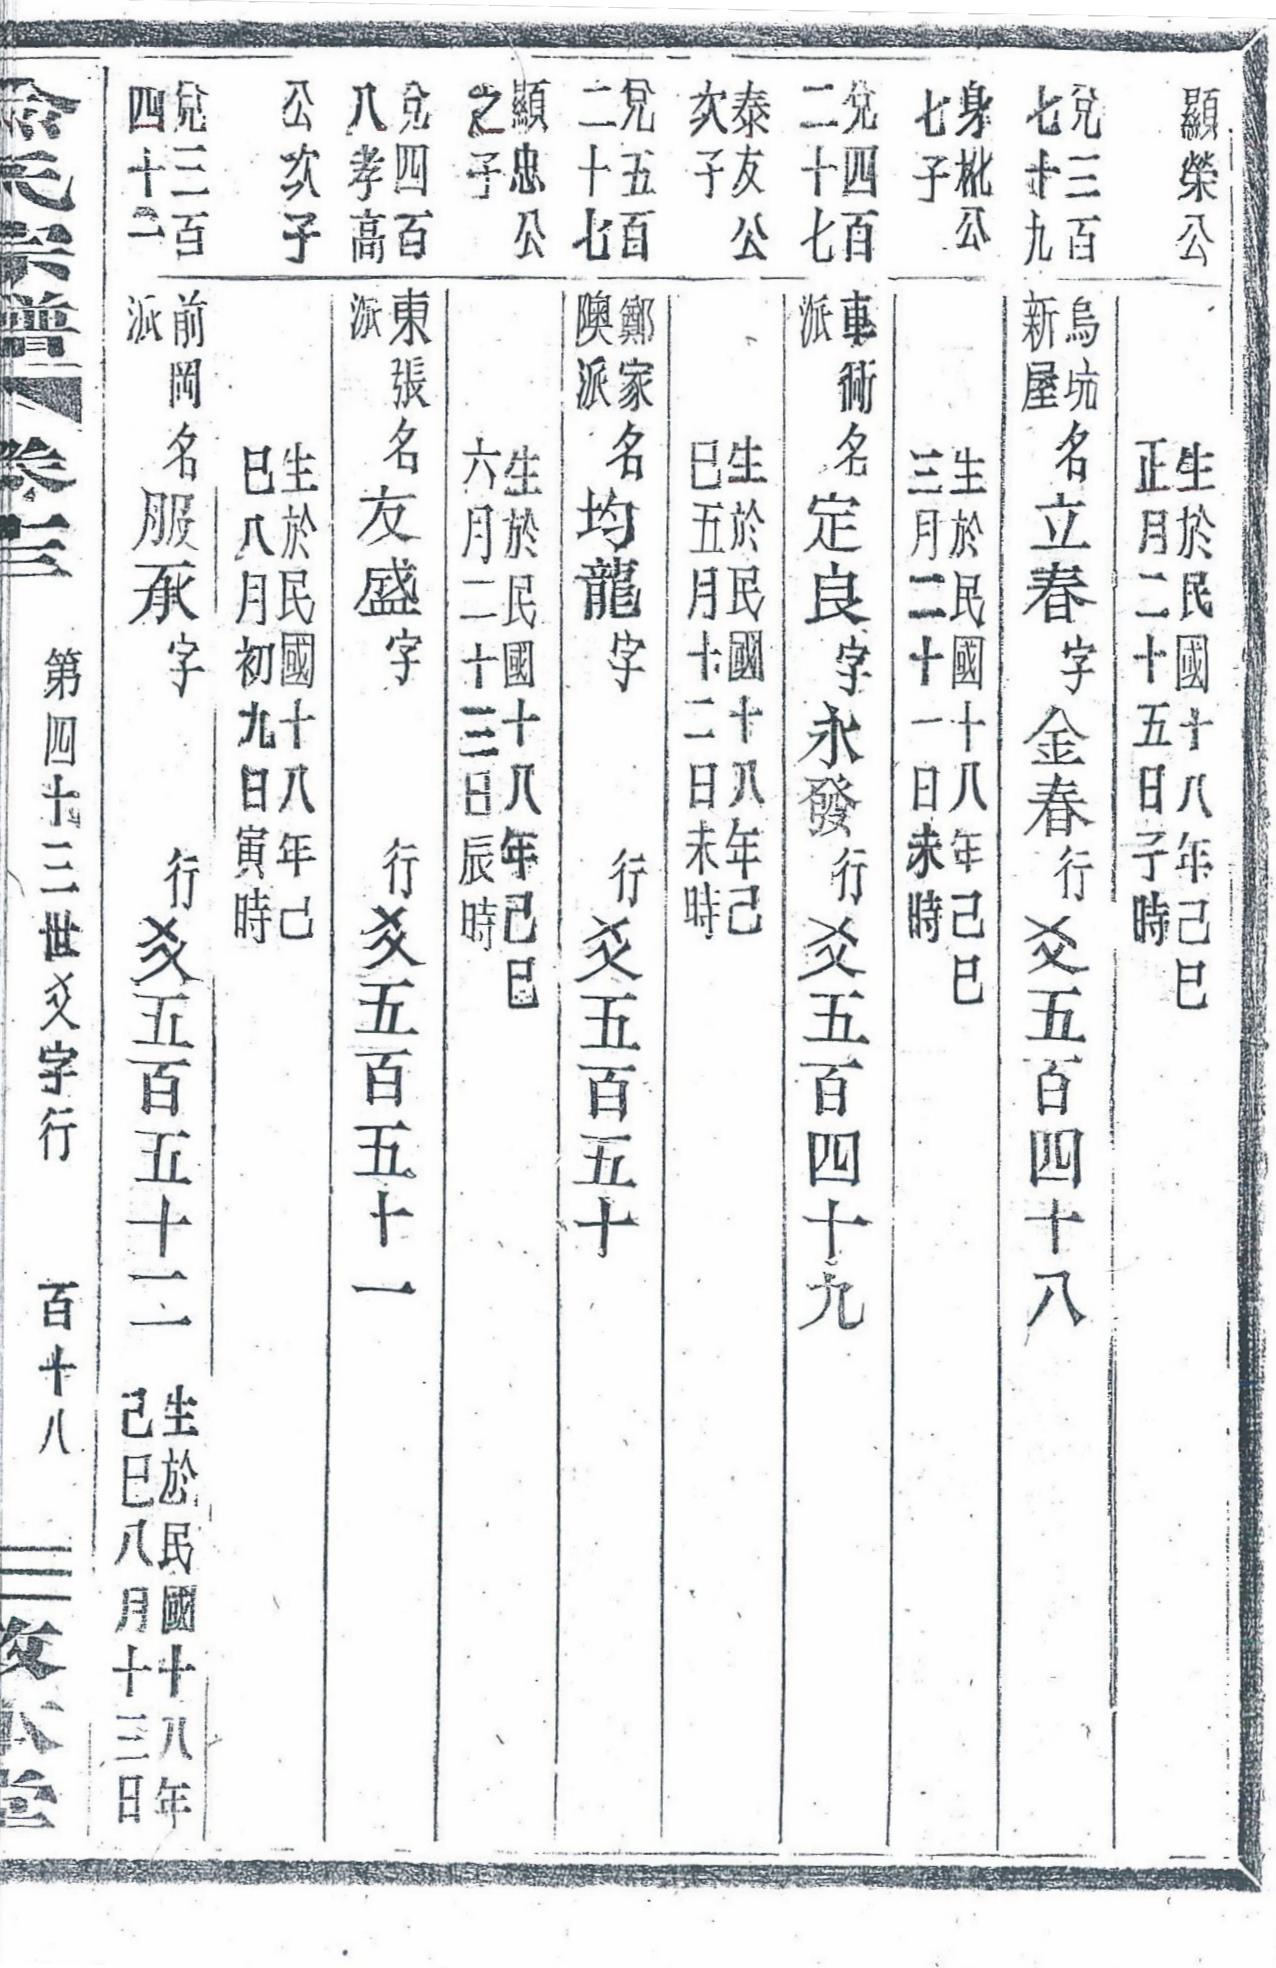 顯榮公
生於民國十八年己巳
正月二十五日子時
兌三百
七十九
烏坑
新屋
名立春字金春行爻五百四十八
身枇公
七子
生於民國十八年己巳
三月二十一日未時
兌四百
二十七
車衕
派
名定良字永發行爻五百四十九
泰友公
次子
生於民國十八年己
巳五月十二日未時
兌五百
二十七
鄭家
隩派
名均龍字 行爻五百五十
顯忠公
之子
生於民國十八年己巳
六月二十三日辰時
兌四百
八孝高
東張
派
名友盛字 行爻五百五十一
公次子
生於民國十八年己
巳八月初九日寅時
兌三百
四十二
前岡
派
名服承字 行爻五百五十二
生於民國十八年
己巳八月十三日
氏宗譜 卷三 第四十三世爻字行 百十八 本堂